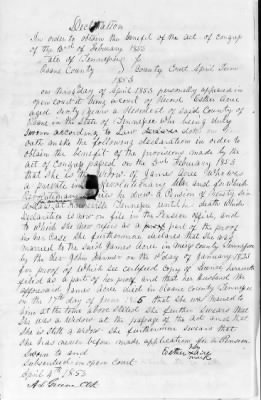 Declaration
In order to obtain the benefit of the act of congress
of the 3rd of February 1853
State of Tennessee
Roane County } County Court April Term
1853
on this day of April 1853 personally appeared in
open court it being a court of Record Esther Acre
aged Sixty years a resident of said County of
Roane in the State of Tennessee who being duly
sworn according to Law doth on
oath make the following declaration in order to
obtain the benefit of the provisions made by the
act of Congress passed on the 3rd February 1853
that She is the widow of James Acre who was
a private in Revolutionary War and for which
Revolutionary he drew a Pension of
Tennessee until death which
Declaration is now on file in the Pension office and
to which She now refers as a part of the proof
in her Case She furthermore declares that She was
married to the Said James Acre in County Tennessee
by the Rev John on the day of January 1825
for proof of which See Certified Copy of license
filed as a part of her proof and that her husband the
aforesaid James Acre died in Roane County Tennessee
on the 17th day of June that She was married to
him at the time above Stated She further Swears that
She was a widow at the passage of the act and that
She is still a widow She furthermore Swears that
She has never before made application for a Pension
Sworn to and her
Subscribed in open court Esther Acre
April 4th 1853 mark
Clk